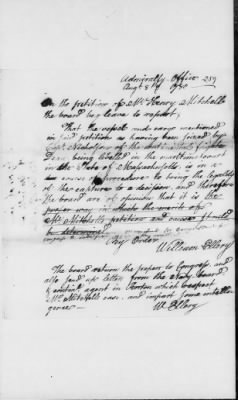 Admiralty Office 259
Augt 8th 1780
On the petition of Mr Henry Mitchell
the board beg leave to report,
That the vessel and cargo mentioned
in said petition as having been seized by
Capt. Nicholson of the
Dean being libelled in the maritime court
in the State of Massachusetts is in a
course of procedure to bring the legality
of her capture to a decision, and therefore
the board are of opinion that it is the
Mr Mitchells petition and
be determined
By Order
William Ellery
The board return the papers to Congress, and
also send up letters from the Navy board
& agent in Boston which respect
Mr Mitchells case, and impart some intelli
gence.—
W. Ellery